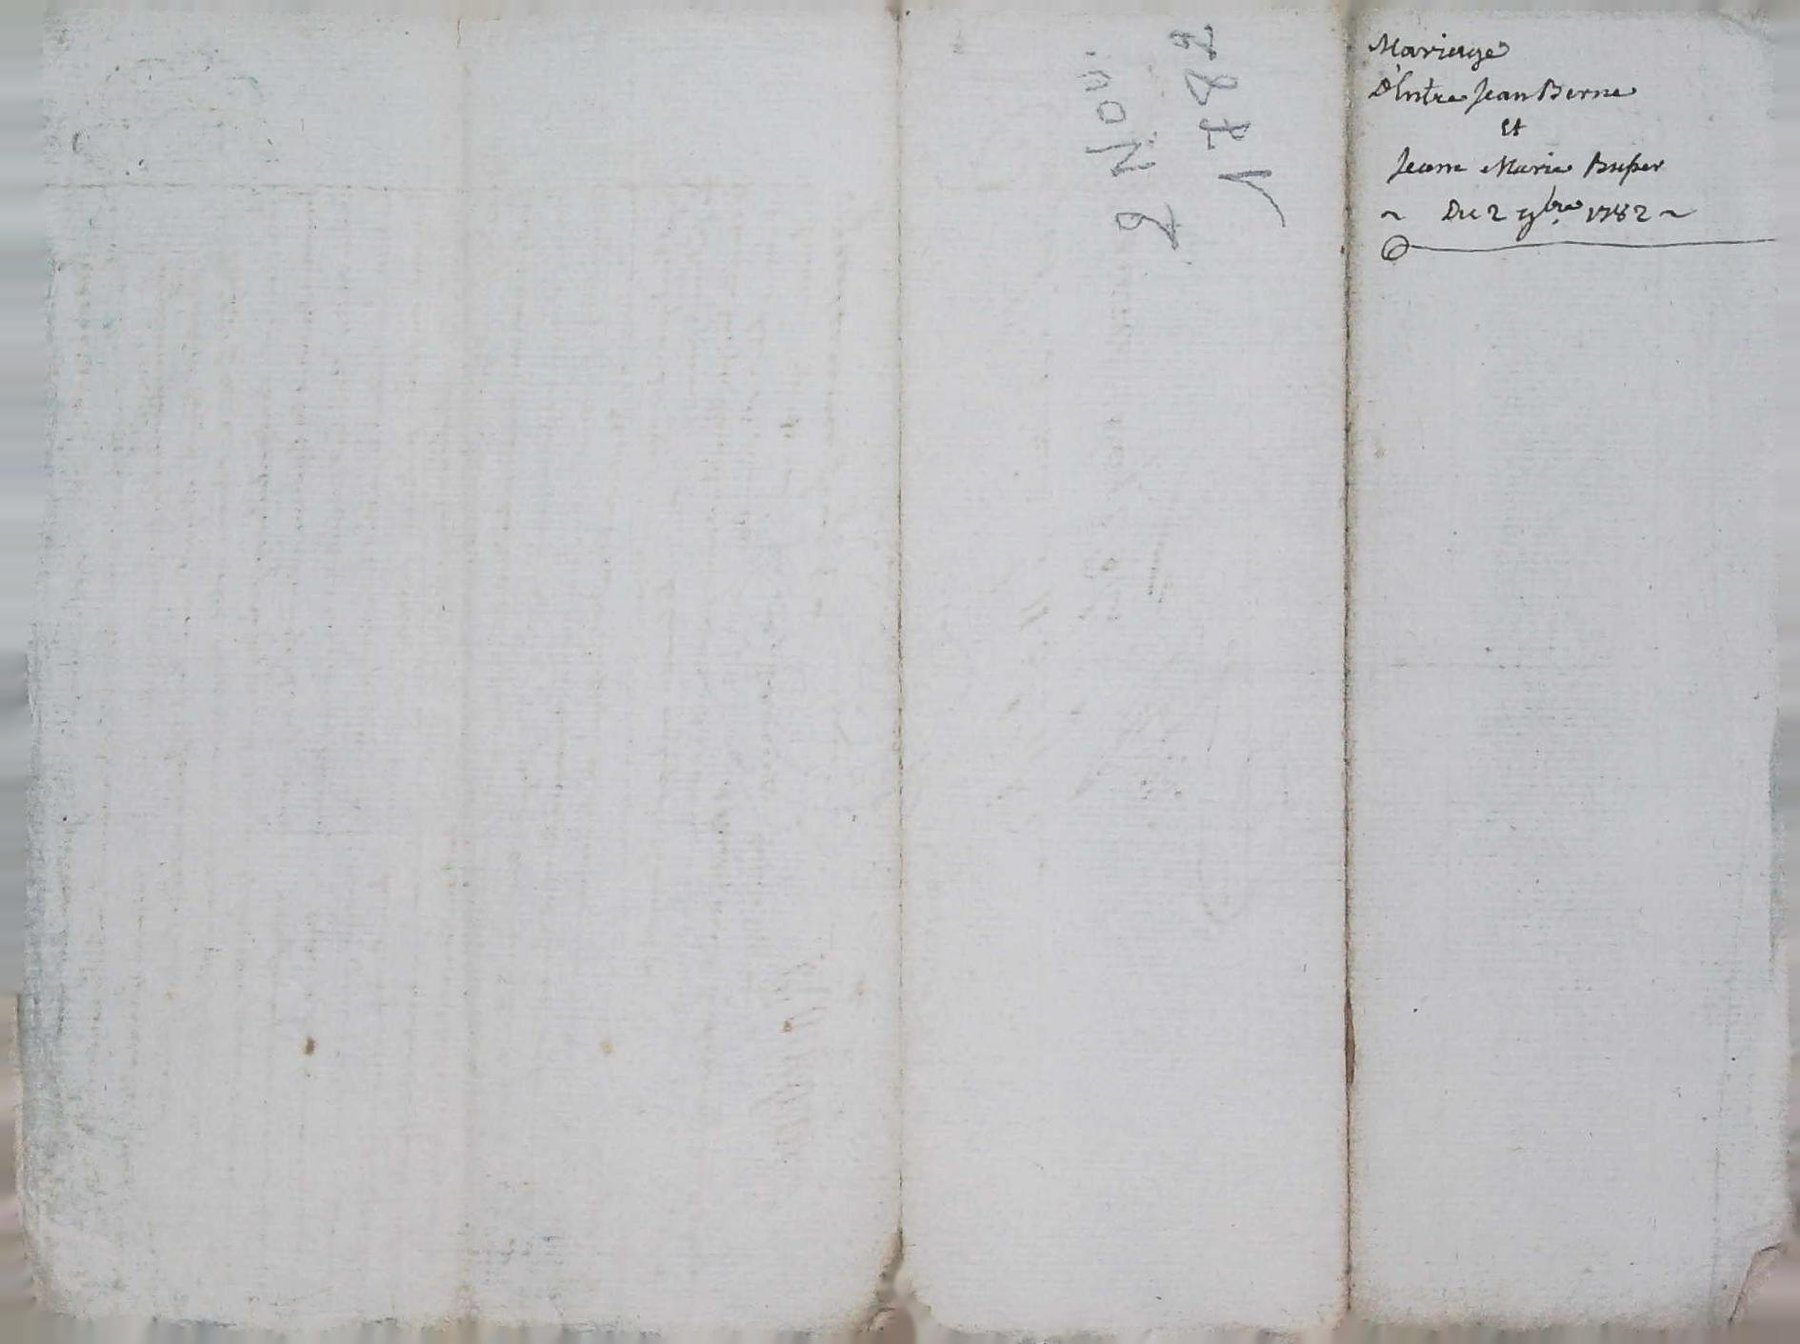 2 Nov.
1782
Mariage
D'Entre Jean Berne
Et
Jeanne Marie Buper
~ Du 2 9bre 1782 ~